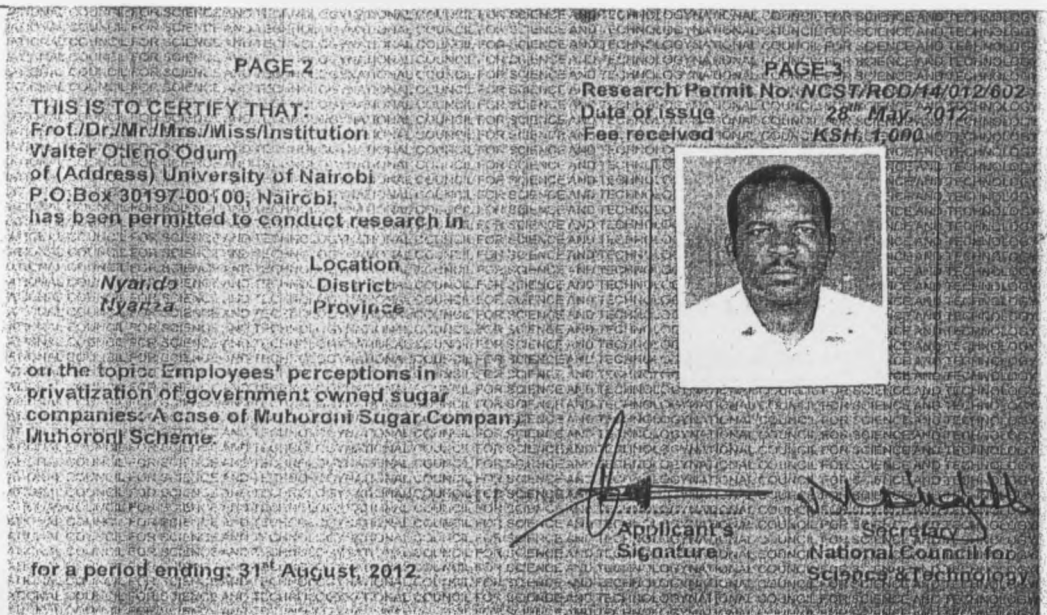 PAGE 2
THIS IS TO CERTIFY THAT:
Prof./Dr./Mr./Mrs./Miss/Institution
Walter Otieno Odum
of (Address) University of Nairobi
P.O.Box 30197-00100, Nairobi.
has been permitted to conduct research in
Location
Nyando District
Nyanza Province
on the topic: Employees' perceptions in
privatization of government owned sugar
companies: A case of Muhoroni Sugar Company
Muhoroni Scheme.
for a period ending: 31st August, 2012.
PAGE 3
Research Permit No. NCST/RCD/14/012/602
Date of issue 28th May, 2012
Fee received KSH. 1,000
Applicant's
Signature
Secretary
National Council for
Science & Technology
NATIONAL COUNCIL FOR SCIENCE AND TECHNOLOGY